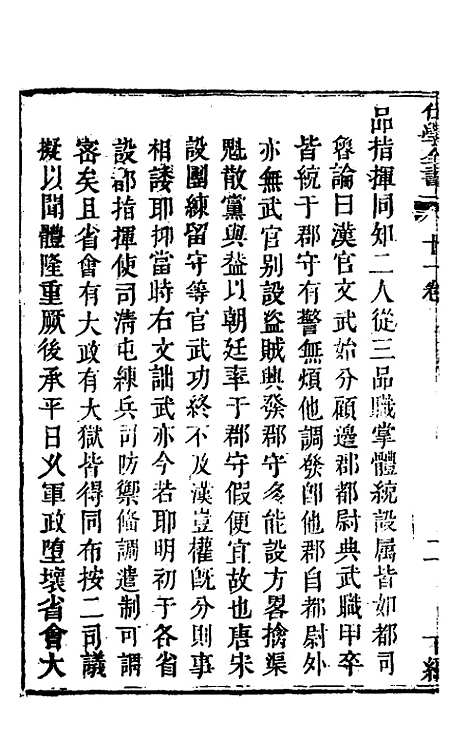 仕學全書 十一卷 二
品指揮同知二人從三品職掌體統設屬皆如都司
魯論曰漢官文武始分顧邊郡都尉典武職甲卒
皆統于郡守有警無煩他調發郎他郡自都尉外
亦無武官别設盜賊興發郡守多能設方畧擒渠
魁散黨與葢以朝廷率于郡守假便宜故也唐宋
設團練留守等官武功終不及漢豈權旣分則事
相諉耶抑當時右文詘武亦今若耶明初于各省
設都指揮使司淸屯練兵司防禦俻調遣制可謂
密矣且省會有大政有大獄皆得同布按二司議
擬以聞體隆重厥後承平日乆軍政堕壞省會大